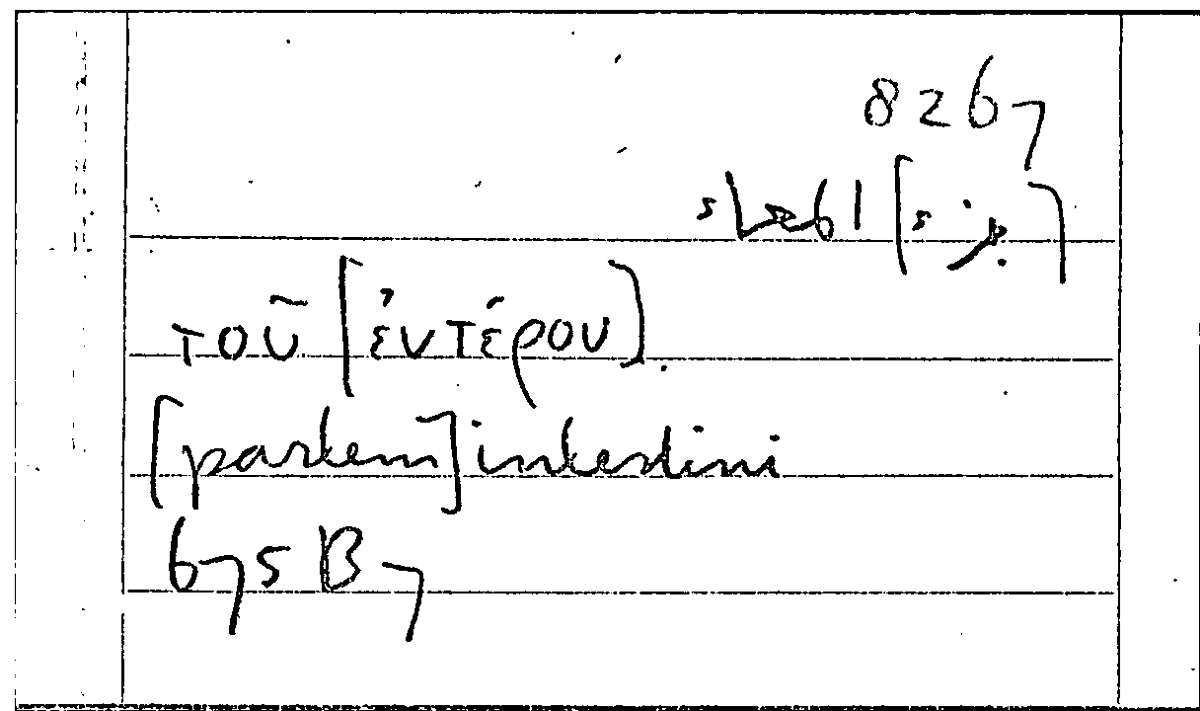 8267
[جزء] الامعاء
τοῦ [ἐντέρου].
[partem] intestini
675 B 7